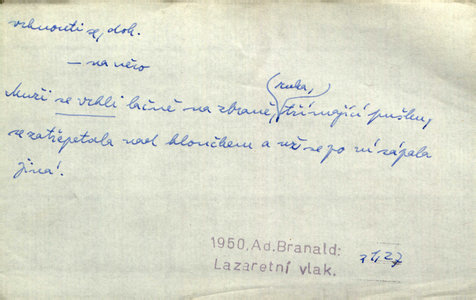 vrhnouti se, dok.
— na něco
Muži se vrhli lačně na zbraně, ruka, třímající pušku,
se zatřepetala nad hloučkem a už se po ní sápala
jiná.
1950. Ad. Branald:
Lazaretní vlak.